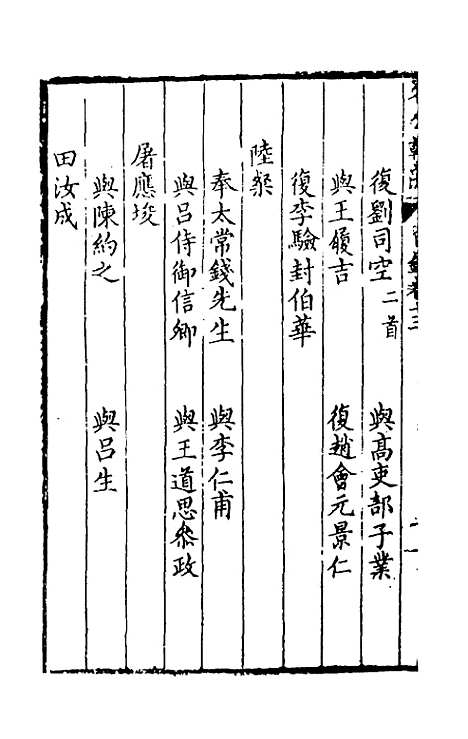 復劉司空二首　與高吏部子業
與王履吉　復趙會元景仁
復李驗封伯華
陸粲
奉太常錢先生　與李仁甫
與呂侍御信卿　與王道思叅政
屠應埈
與陳約之　與呂生
田汝成